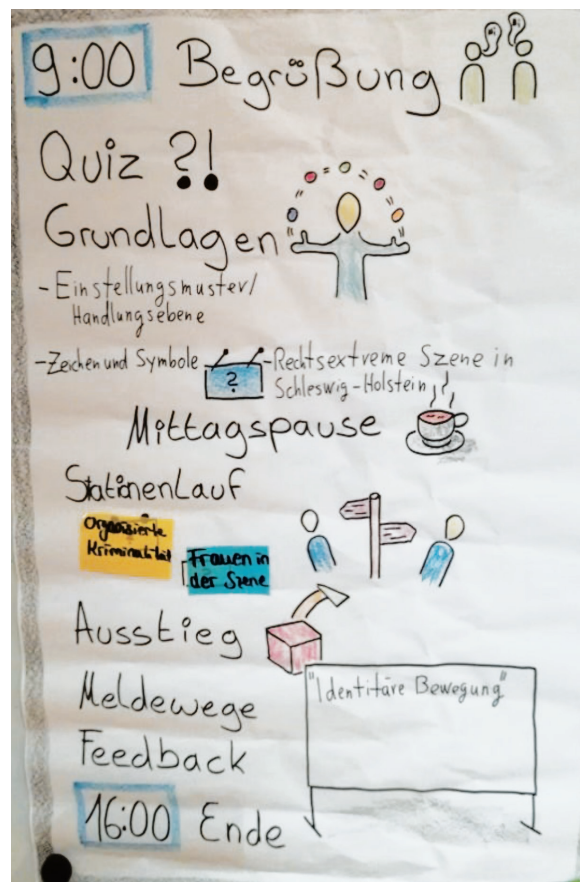 9:00 Begrüßung
Quiz ?!
Grundlagen
- Einstellungsmuster/
Handlungsebene
- Zeichen und Symbole
?
- Rechtsextreme Szene in
Schleswig-Holstein
Mittagspause
Stationenlauf
Organisierte
Kriminalität
Frauen in
der Szene
Ausstieg
"Identitäre Bewegung"
Meldewege
Feedback
16:00 Ende